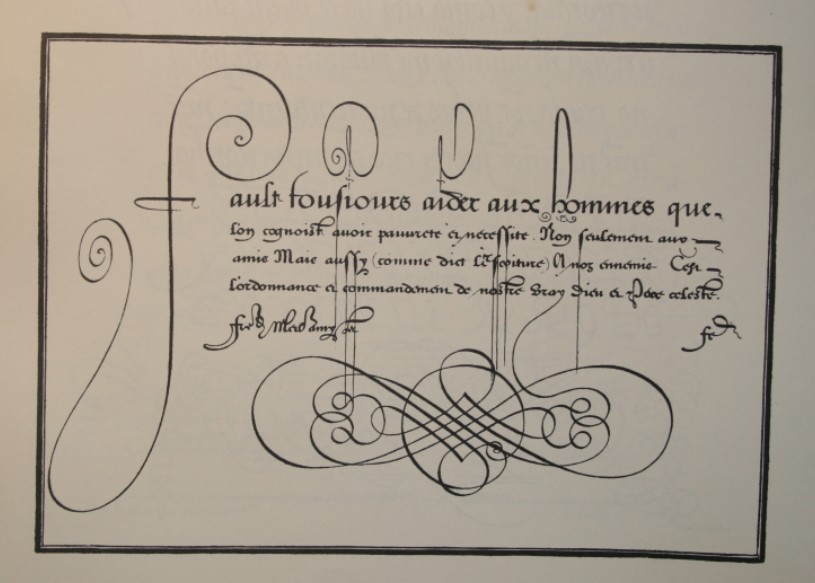 fault tousiours aider aux hommes que
lon cognoist avoir pauvrete et necessite. Non seulement aux
amis Mais aussy (comme dict lescripture) A noz ennemis Cest
lordonnance et commandement de nostre Vray Dieu et Pere celeste.